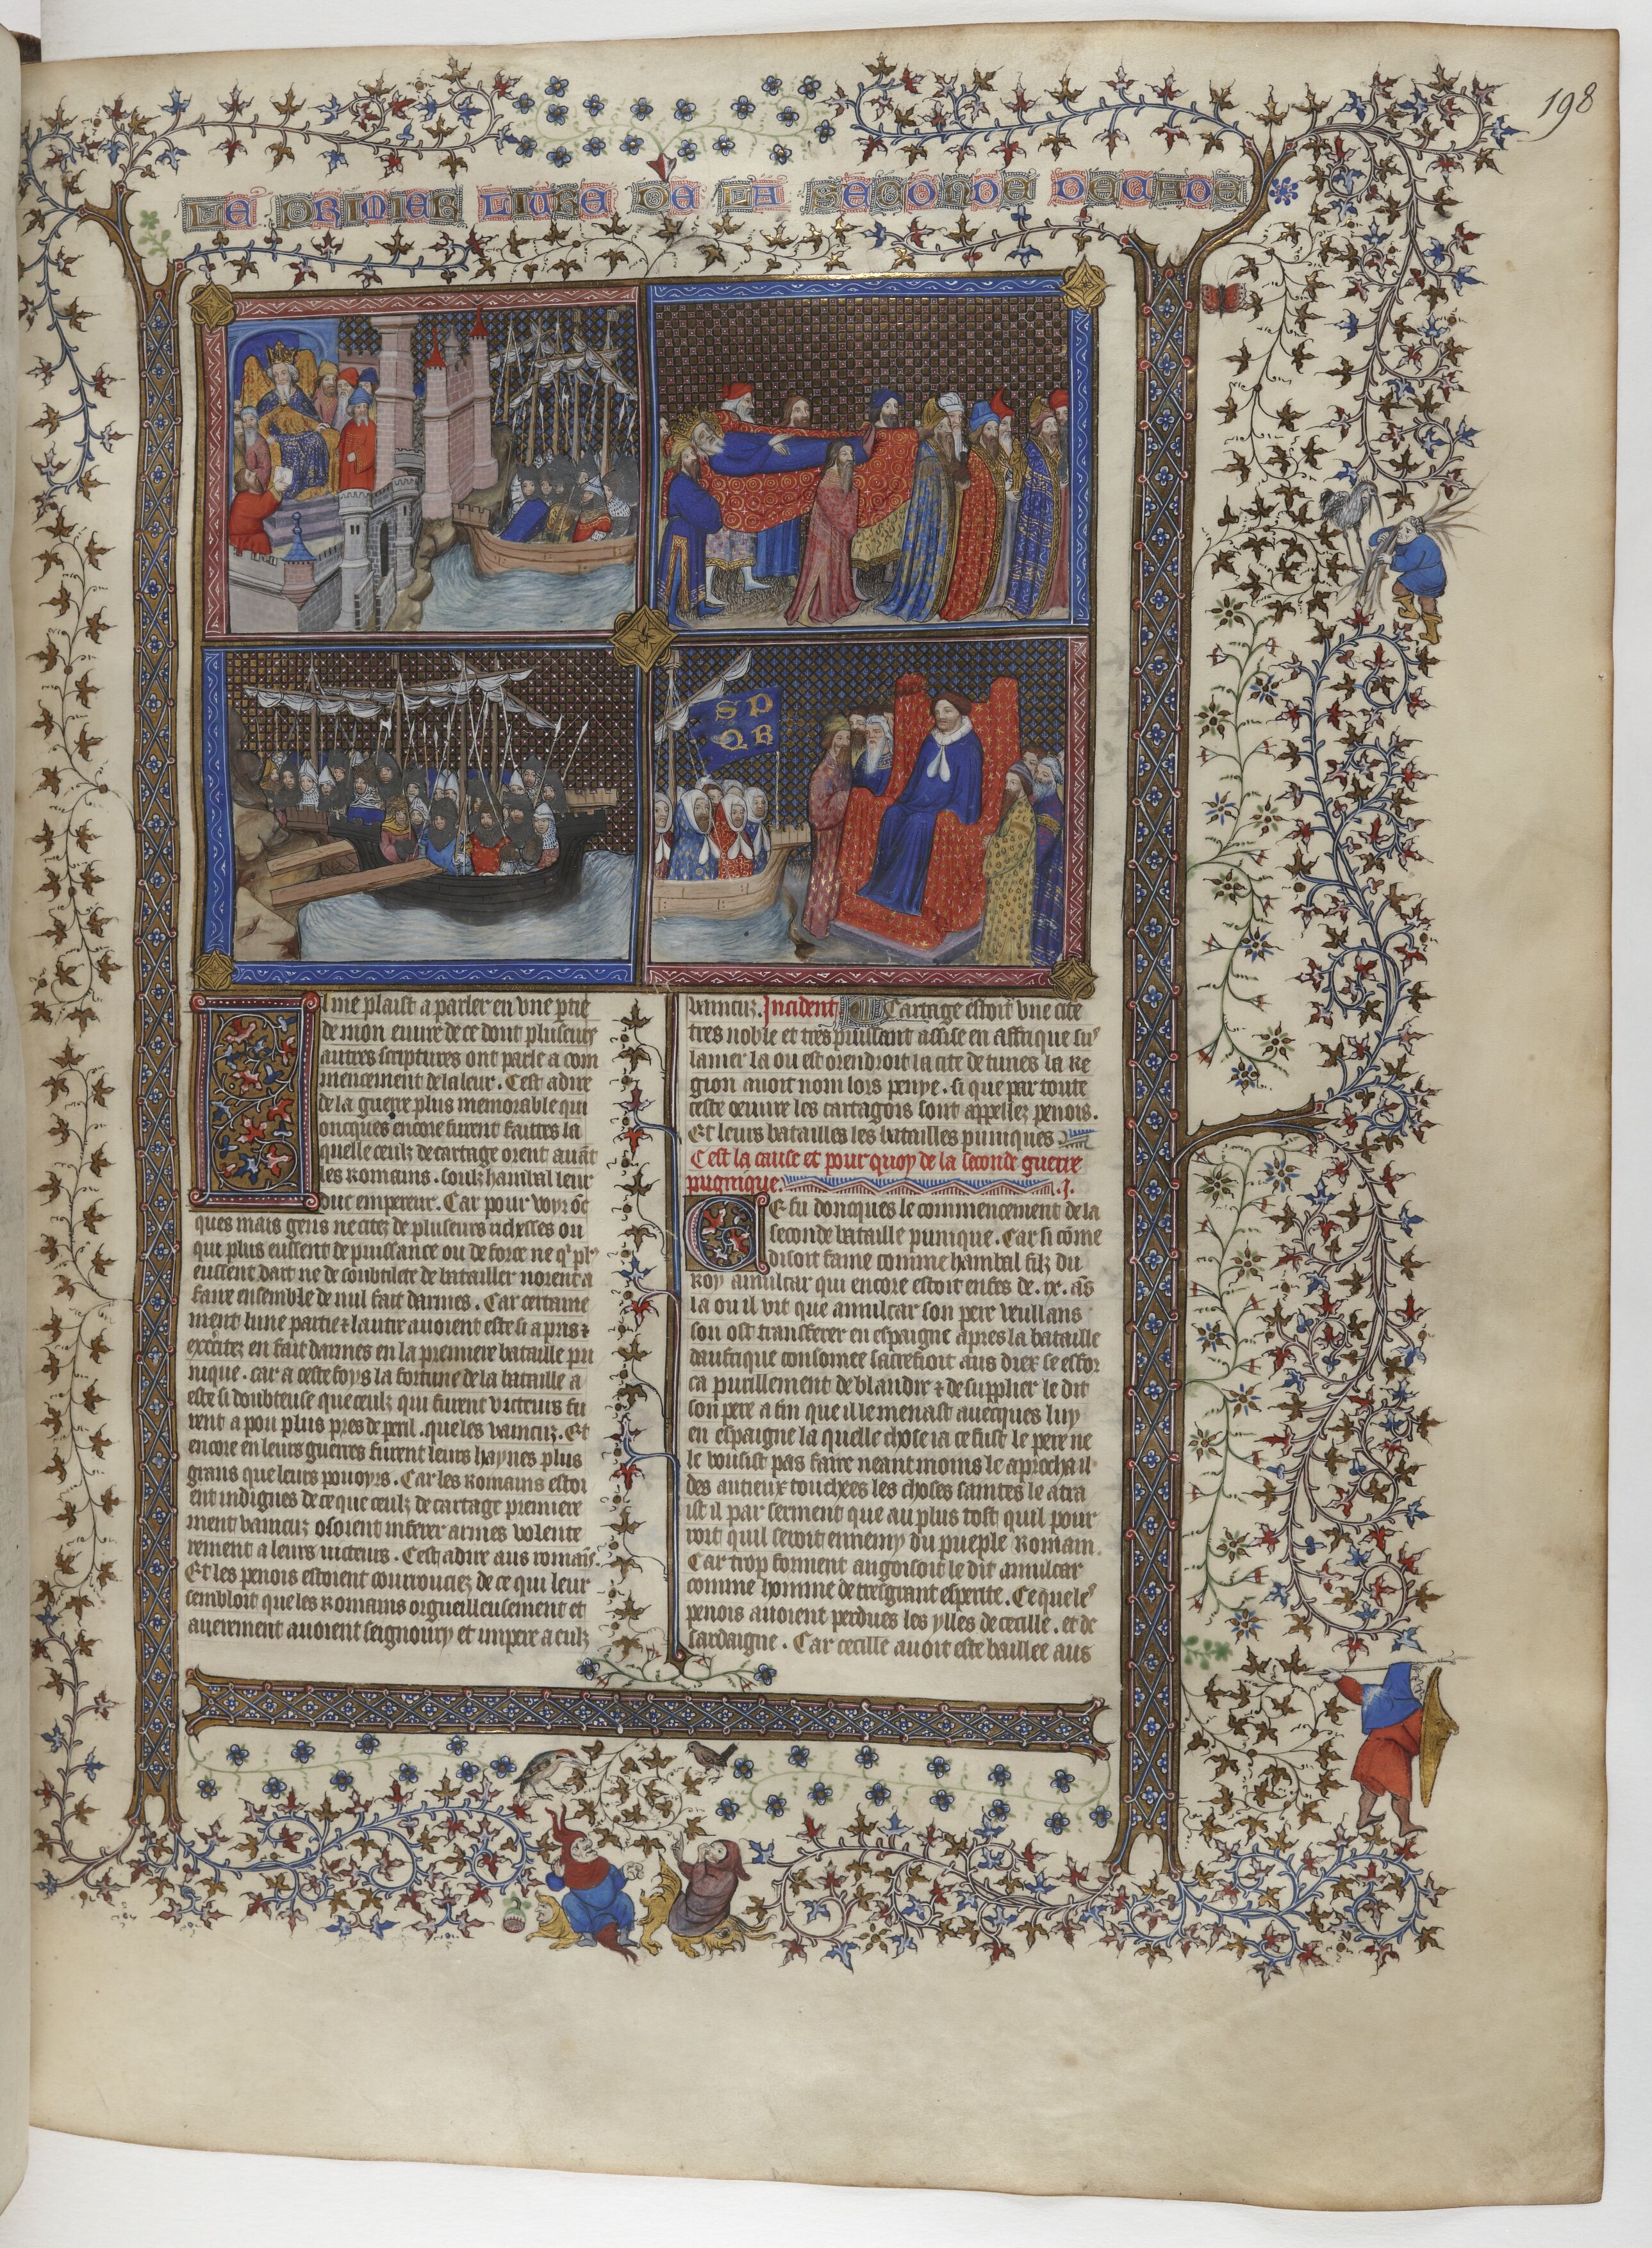 198
LE PRIMIER LIURE DE LA SECONDE DECADE
S P
Q R
Il me plaist a parler en vne ptie
de mon euure de ce dont pluseurs
autres scriptures ont parle a com
mencement de la leur. Cest a dire
de la guerre plus memorable qui
oncques encore furent faittes la
quelle ceulz de cartage orent auāt
les Romains. soulz hanibal leur
duc empereur. Car pour voyr
ques mais gens ne citez de pluseurs richesses ou
qui plus eussent de puissance ou de force ne
eussent dart ne de soubtilete de batailler norent a
faire ensemble de nul fait darmes. Car certaine
ment lune partie ⁊ lautre auoient este si apris ⁊
excitez en fait darmes en la premiere bataille pu
nique. car a ceste foys la fortune de la bataille a
este si doubteuse que ceulz qui furent victeurs fu
rent a pou plus pres de peril. que les vaincuz. Et
encore en leurs guerres furent leurs haynes plus
grans que leurs pouoyrs. Car les Romains estoi
ent indignes de ce que ceulz de cartage premiere
ment vaincuz osoient inferer armes volente
rement a leurs victeurs. Cest a dire aus romaīs.
Et les penois estoient courrouciez de ce qui leur
sembloit que les Romains orgueilleusement et
auerment auoient seignoury et impere a eulz
vaincuz. Incident Cartage estoit vne cite
tres noble et tres puissant assise en affrique sus
la mer la ou est orendroit la cite de tunes la Re
gion auoit nom lors penye. si que par toute
ceste oeuure les cartagois sont appellez penois.
Et leurs batailles les batailles puniques
Cest la cause et pour quoy de la seconde guerre
pugnique. .I.
Ce fu doncques le commencement de la
seconde bataille punique. Car si cōme
disoit fame comme hanibal filz du
Roy amulcar qui encore estoit enfes de .ix. ās
la ou il vit que amulcar son pere veullans
son ost transferer en espaigne apres la bataille
daufrique consomee sacrefioit aus diex se effor
ca puerillement de blandir ⁊ de supplier le dit
son pere a fin que il le menast auecques luy
en espaigne la quelle chose ia ce fust le pere ne
le vousist pas faire neantmoins le aprocha il
des autieux touchees les choses saintes le atra
ist il par serment que au plus tost quil pour
roit quil seroit ennemy du pueple Romain.
Car trop forment angoisoit le dit amulcar
comme homme de tresgrant esperite. Ce que les
penois auoient perdues les ylles de cecille. et de
sardaigne. Car cecille auoit este baillee aus